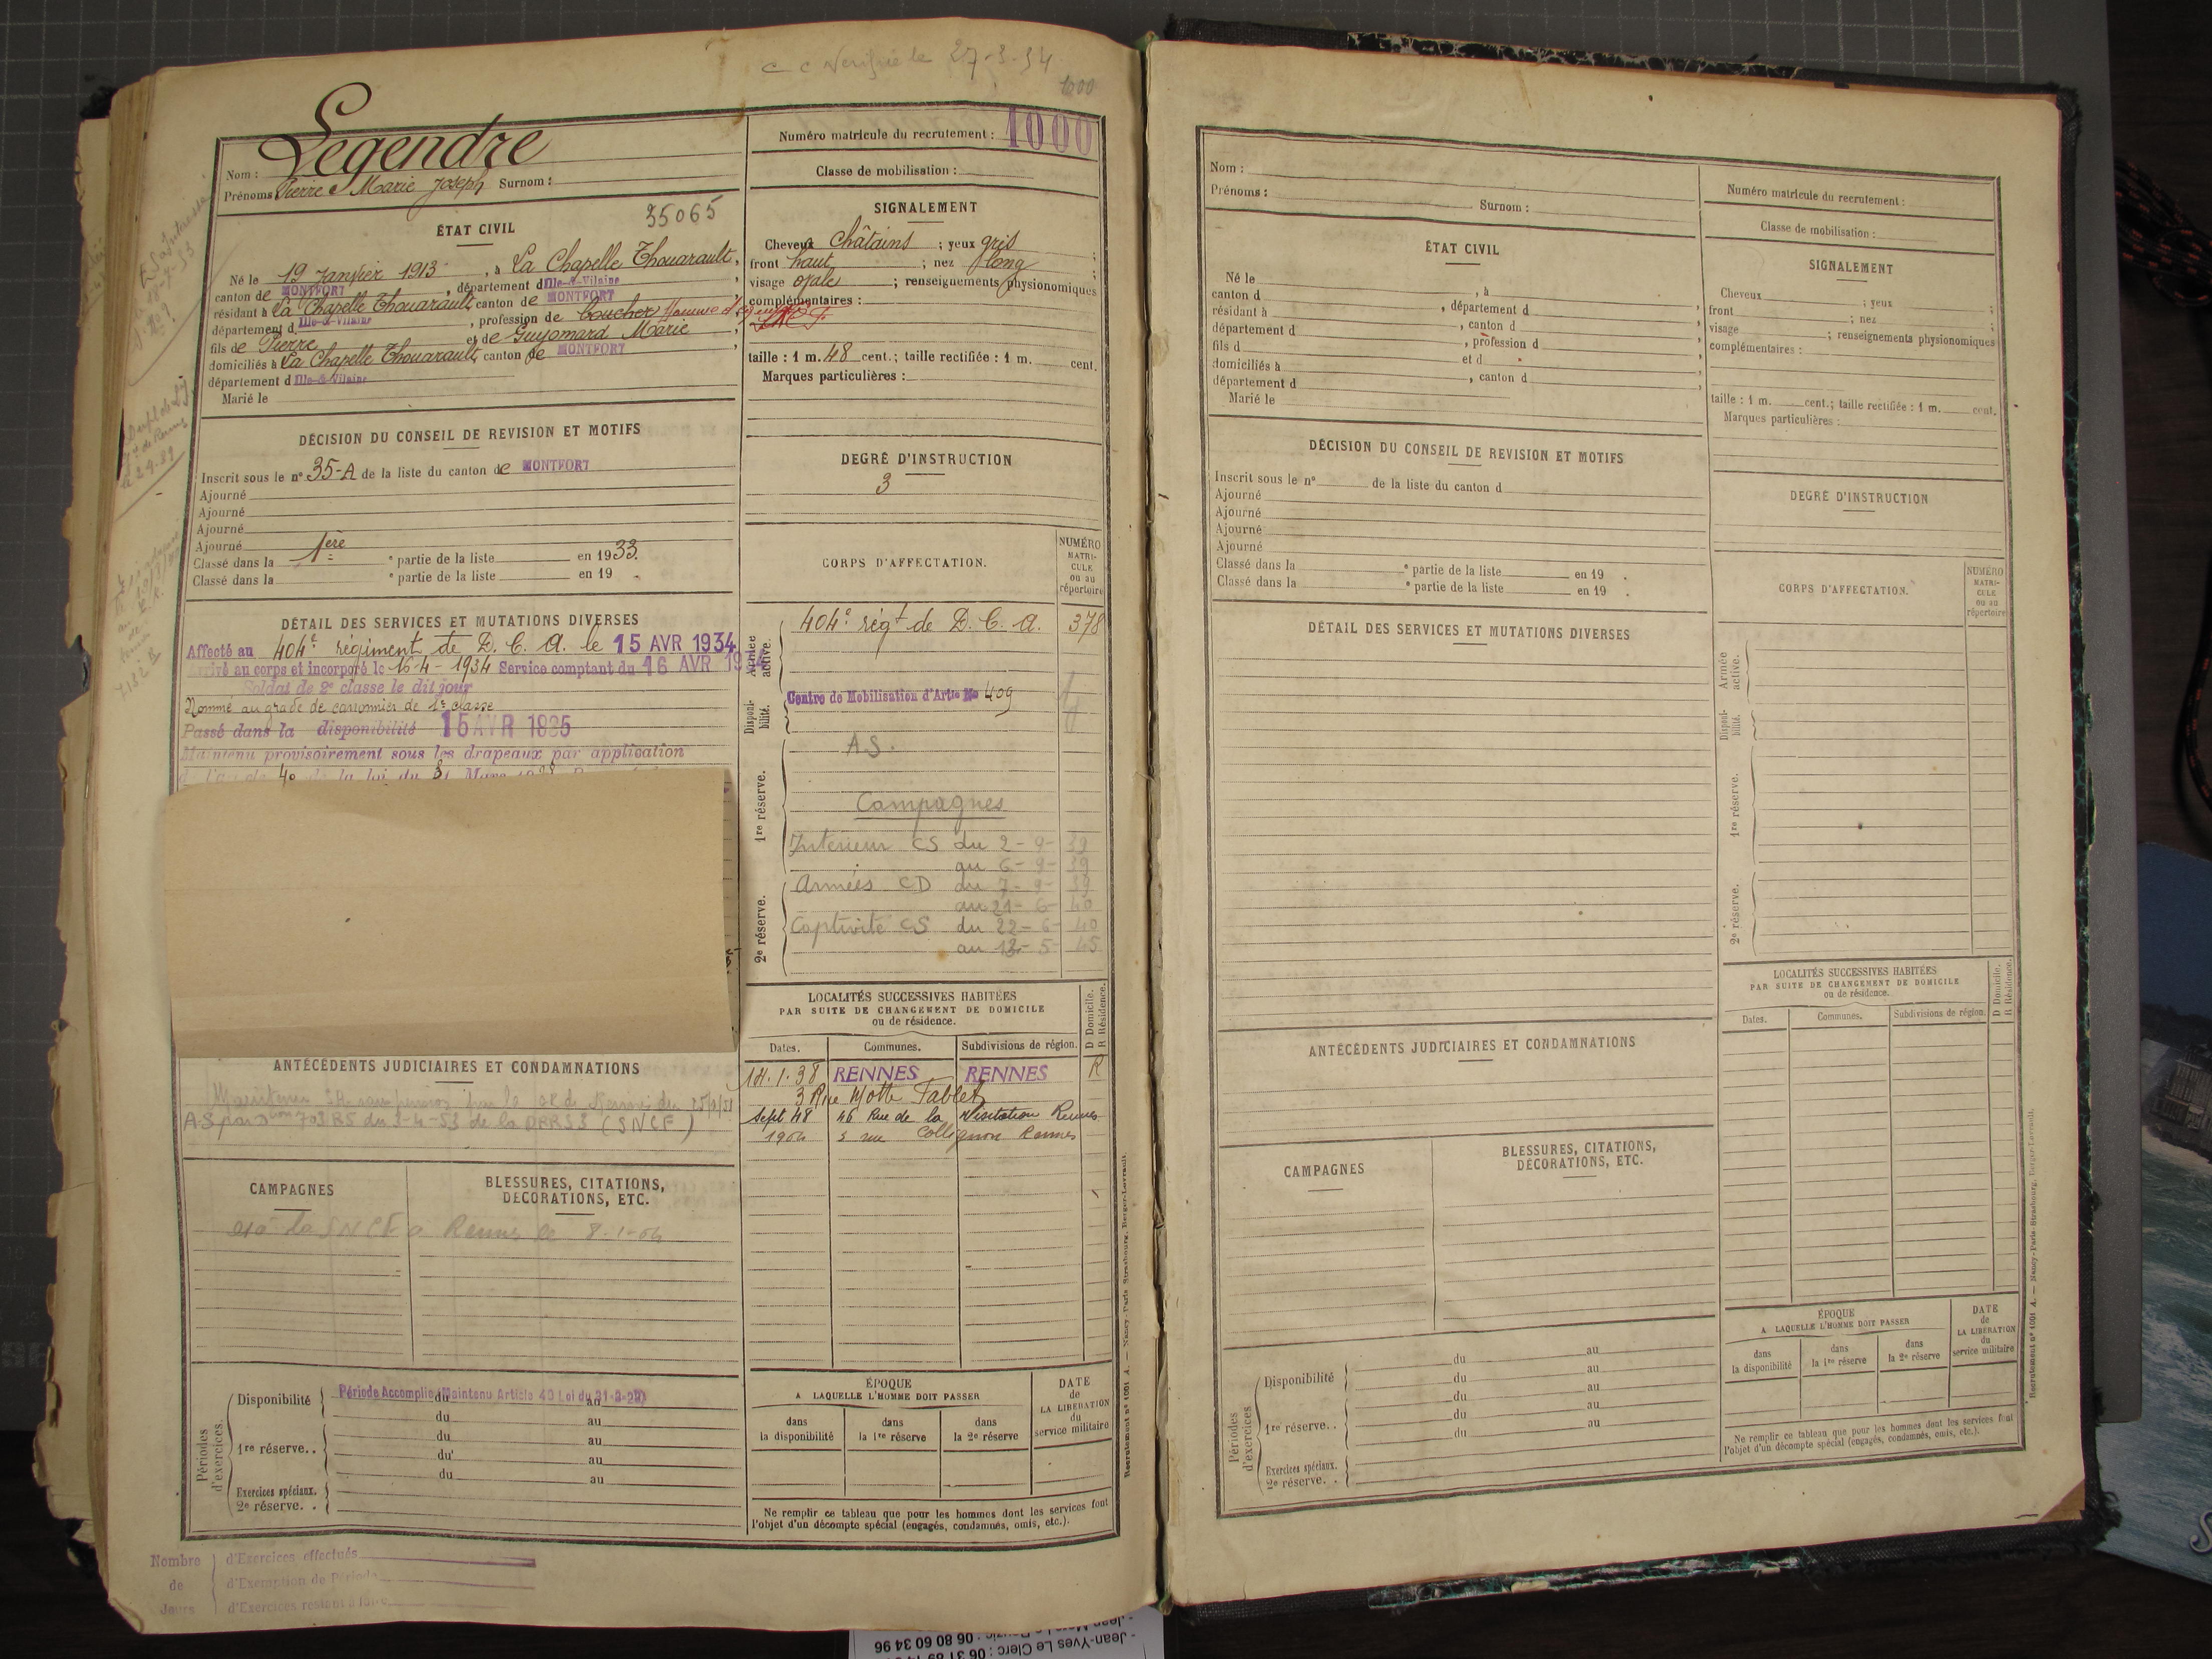 c c Vérifié le 27-3-34
1000
Legendre
Nom :
Prénoms Pierre Marie Joseph Surnom :
Numéro matricule du recrutement : 1000
Classe de mobilisation :
35065
ÉTAT CIVIL
Né le 19 Janvier 1913, à La Chapelle Thouarault,
canton de MONTFORT, département d Ille-&-Vilaine,
résidant à La Chapelle Thouarault, canton de MONTFORT
département d Ille-&-Vilaine, profession de boucher homme d'équipe
fils de Pierre et de Guyomard Marie,
domiciliés à La Chapelle Thouarault, canton de MONTFORT,
département d Ille-&-Vilaine
Marié le
SIGNALEMENT
Cheveux châtains ; yeux gris
front haut ; nez long ;
visage ovale ; renseignements physionomiques
complémentaires :
taille : 1 m. 48 cent. ; taille rectifiée : 1 m. cent.
Marques particulières :
DÉCISION DU CONSEIL DE REVISION ET MOTIFS
Inscrit sous le n° 35-A de la liste du canton de MONTFORT
Ajourné
Ajourné
Ajourné
Ajourné
Classé dans la 1ère e partie de la liste en 1933.
Classé dans la e partie de la liste en 19 .
DEGRÉ D'INSTRUCTION
3
DÉTAIL DES SERVICES ET MUTATIONS DIVERSES
Affecté au 404e régiment de D. C. A. le 15 AVR 1934
Arrivé au corps et incorporé le 16-4-1934 Service comptant du 16 AVR 19
Soldat de 2e classe le dit jour
Nommé au grade de canonnier de 1re classe
Passé dans la disponibilité 15 AVR 1935
Maintenu provisoirement sous les drapeaux par application
de l'article 40 de la loi du 31 Mars 1928
CORPS D'AFFECTATION.
NUMÉRO
MATRI-
CULE
ou au
répertoire
Armée active.
404e régt de D. C. A. 378
Disponi-
bilité.
Centre de Mobilisation d'Artie No 409
A S.
1re réserve.
Campagnes
Intérieur CS du 2-9-39
au 6-9-39
Armées CD du 7-9-39
au 21-6-40
2e réserve.
Captivité CS du 22-6-40
au 13-5-45
LOCALITÉS SUCCESSIVES HABITÉES
PAR SUITE DE CHANGEMENT DE DOMICILE
ou de résidence.
D Domicile.
R Résidence.
Dates. Communes. Subdivisions de région.
14.1.38 RENNES RENNES R
3 Rue Motte Fablet
Sept 48 46 Rue de la Visitation Rennes
1964 5 rue Collignon Rennes
ANTÉCÉDENTS JUDICIAIRES ET CONDAMNATIONS
A.S par 703 RS du 3-4-53 de la (SNCF)
CAMPAGNES
BLESSURES, CITATIONS,
DÉCORATIONS, ETC.
la SNCF à Rennes le 8-1-64
Périodes
d'exercices.
Disponibilité Période Accomplie (Maintenu Article 40 Loi du 31-3-28)
du au
du au
1re réserve. . du au
du au
du au
Exercices spéciaux.
2e réserve. .
ÉPOQUE
A LAQUELLE L'HOMME DOIT PASSER
dans
la disponibilité
dans
la 1re réserve
dans
la 2e réserve
DATE
de
LA LIBÉRATION
du
service militaire
Ne remplir ce tableau que pour les hommes dont les services font
l'objet d'un décompte spécial (engagés, condamnés, omis, etc.).
Recrutement n° 1001 A. — Nancy-Paris-Strasbourg, Berger-Levrault.
Nombre
de
Jours
d'Exercices effectués
d'Exemption de Période
d'Exercices restant à faire
Nom :
Prénoms : Surnom :
Numéro matricule du recrutement :
Classe de mobilisation :
ÉTAT CIVIL
Né le , à ,
canton d , département d ,
résidant à , canton d
département d , profession d ,
fils d et d ,
domiciliés à , canton d ,
département d
Marié le
SIGNALEMENT
Cheveux ; yeux
front ; nez ;
visage ; renseignements physionomiques
complémentaires :
taille : 1 m. cent. ; taille rectifiée : 1 m. cent.
Marques particulières :
DÉCISION DU CONSEIL DE REVISION ET MOTIFS
Inscrit sous le n° de la liste du canton d
Ajourné
Ajourné
Ajourné
Ajourné
Classé dans la e partie de la liste en 19 .
Classé dans la e partie de la liste en 19 .
DEGRÉ D'INSTRUCTION
DÉTAIL DES SERVICES ET MUTATIONS DIVERSES
CORPS D'AFFECTATION.
NUMÉRO
MATRI-
CULE
ou au
répertoire
Armée
active.
Disponi-
bilité.
1re réserve.
2e réserve.
LOCALITÉS SUCCESSIVES HABITÉES
PAR SUITE DE CHANGEMENT DE DOMICILE
ou de résidence.
D Domicile.
R Résidence.
Dates. Communes. Subdivisions de région.
ANTÉCÉDENTS JUDICIAIRES ET CONDAMNATIONS
CAMPAGNES
BLESSURES, CITATIONS,
DÉCORATIONS, ETC.
Périodes
d'exercices
Disponibilité
du au
du au
du au
1re réserve. . du au
du au
Exercices spéciaux.
2e réserve. .
ÉPOQUE
A LAQUELLE L'HOMME DOIT PASSER
dans
la disponibilité
dans
la 1re réserve
dans
la 2e réserve
DATE
de
LA LIBÉRATION
du
service militaire
Ne remplir ce tableau que pour les hommes dont les services font
l'objet d'un décompte spécial (engagés, condamnés, omis, etc.).
Recrutement n° 1001 A. — Nancy-Paris-Strasbourg, Berger-Levrault.
- Jean-Yves Le Clerc : 06 31 89
: 06 80 60 34 96